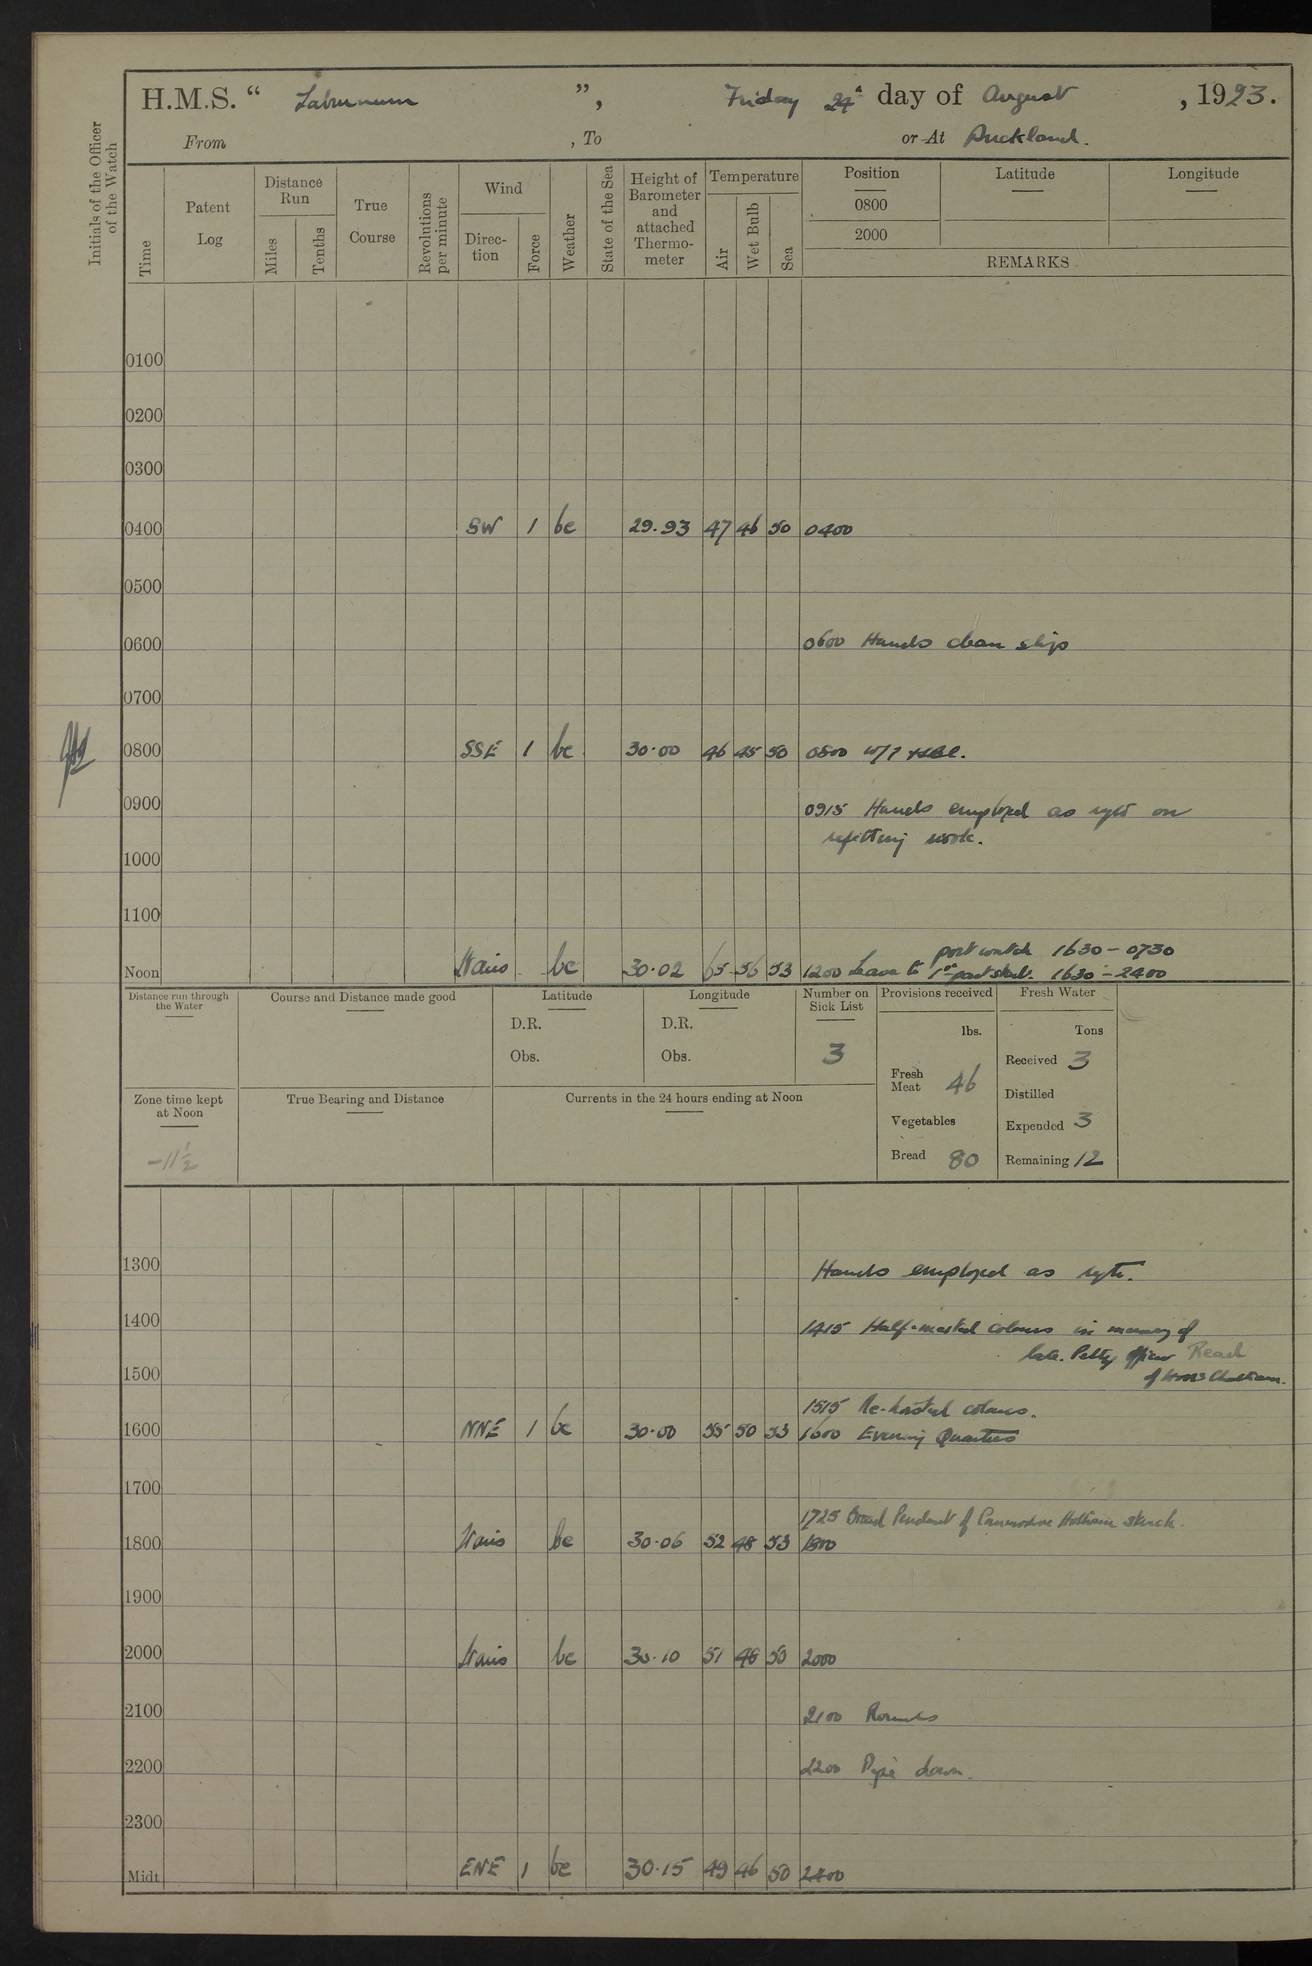 H.M.S. “ Laburnum ”, Friday 24th day of August , 1923.
From , To or At Auckland.
Initials of the Officer of the Watch
Time
Patent Log
Distance Run
Miles
Tenths
True Course
Revolutions per minute
Wind
Direc-tion
Force
Weather
State of the Sea
Height of Barometer and attached Thermo-meter
Temperature
Air
Wet Bulb
Sea
Position
Latitude
Longitude
0800
2000
REMARKS
0100
0200
0300
0400 SW 1 bc 29.93 47 46 50 0400
0500
0600 0600 Hands clean ship
0700
0800 SSE 1 bc 30.00 46 45 50 0800
0900 0915 Hands employed as reqd on
refitting work.
1000
1100
port watch 1630 - 0730
Noon Vairs bc 30.02 65 56 53 1200 Leave to 1st part stbd. 1630 - 2400
Distance run through the Water
Course and Distance made good
Latitude
D.R.
Obs.
Longitude
D.R.
Obs.
Number on Sick List
3
Provisions received
lbs.
Fresh Meat 46
Vegetables
Bread 80
Fresh Water
Tons
Received 3
Distilled
Expended 3
Remaining 12
Zone time kept at Noon
-11½
True Bearing and Distance
Currents in the 24 hours ending at Noon
1300 Hands employed as reqte.
1400 1415 Half-masted colours in memory of
late Petty Officer Read
1500 of HMS Chatham.
1515 Re-hoisted colours.
1600 NNE 1 bc 30.00 55 50 53 1600 Evening Quarters
1700
1725 Broad Pendant of Commodore Hotham struck.
1800 Vairs bc 30.06 52 48 53 1800
1900
2000 Vairs bc 30.10 51 48 50 2000
2100 2100 Rounds
2200 2200 Pipe down.
2300
Midt. ENE 1 bc 30.15 49 46 50 2400